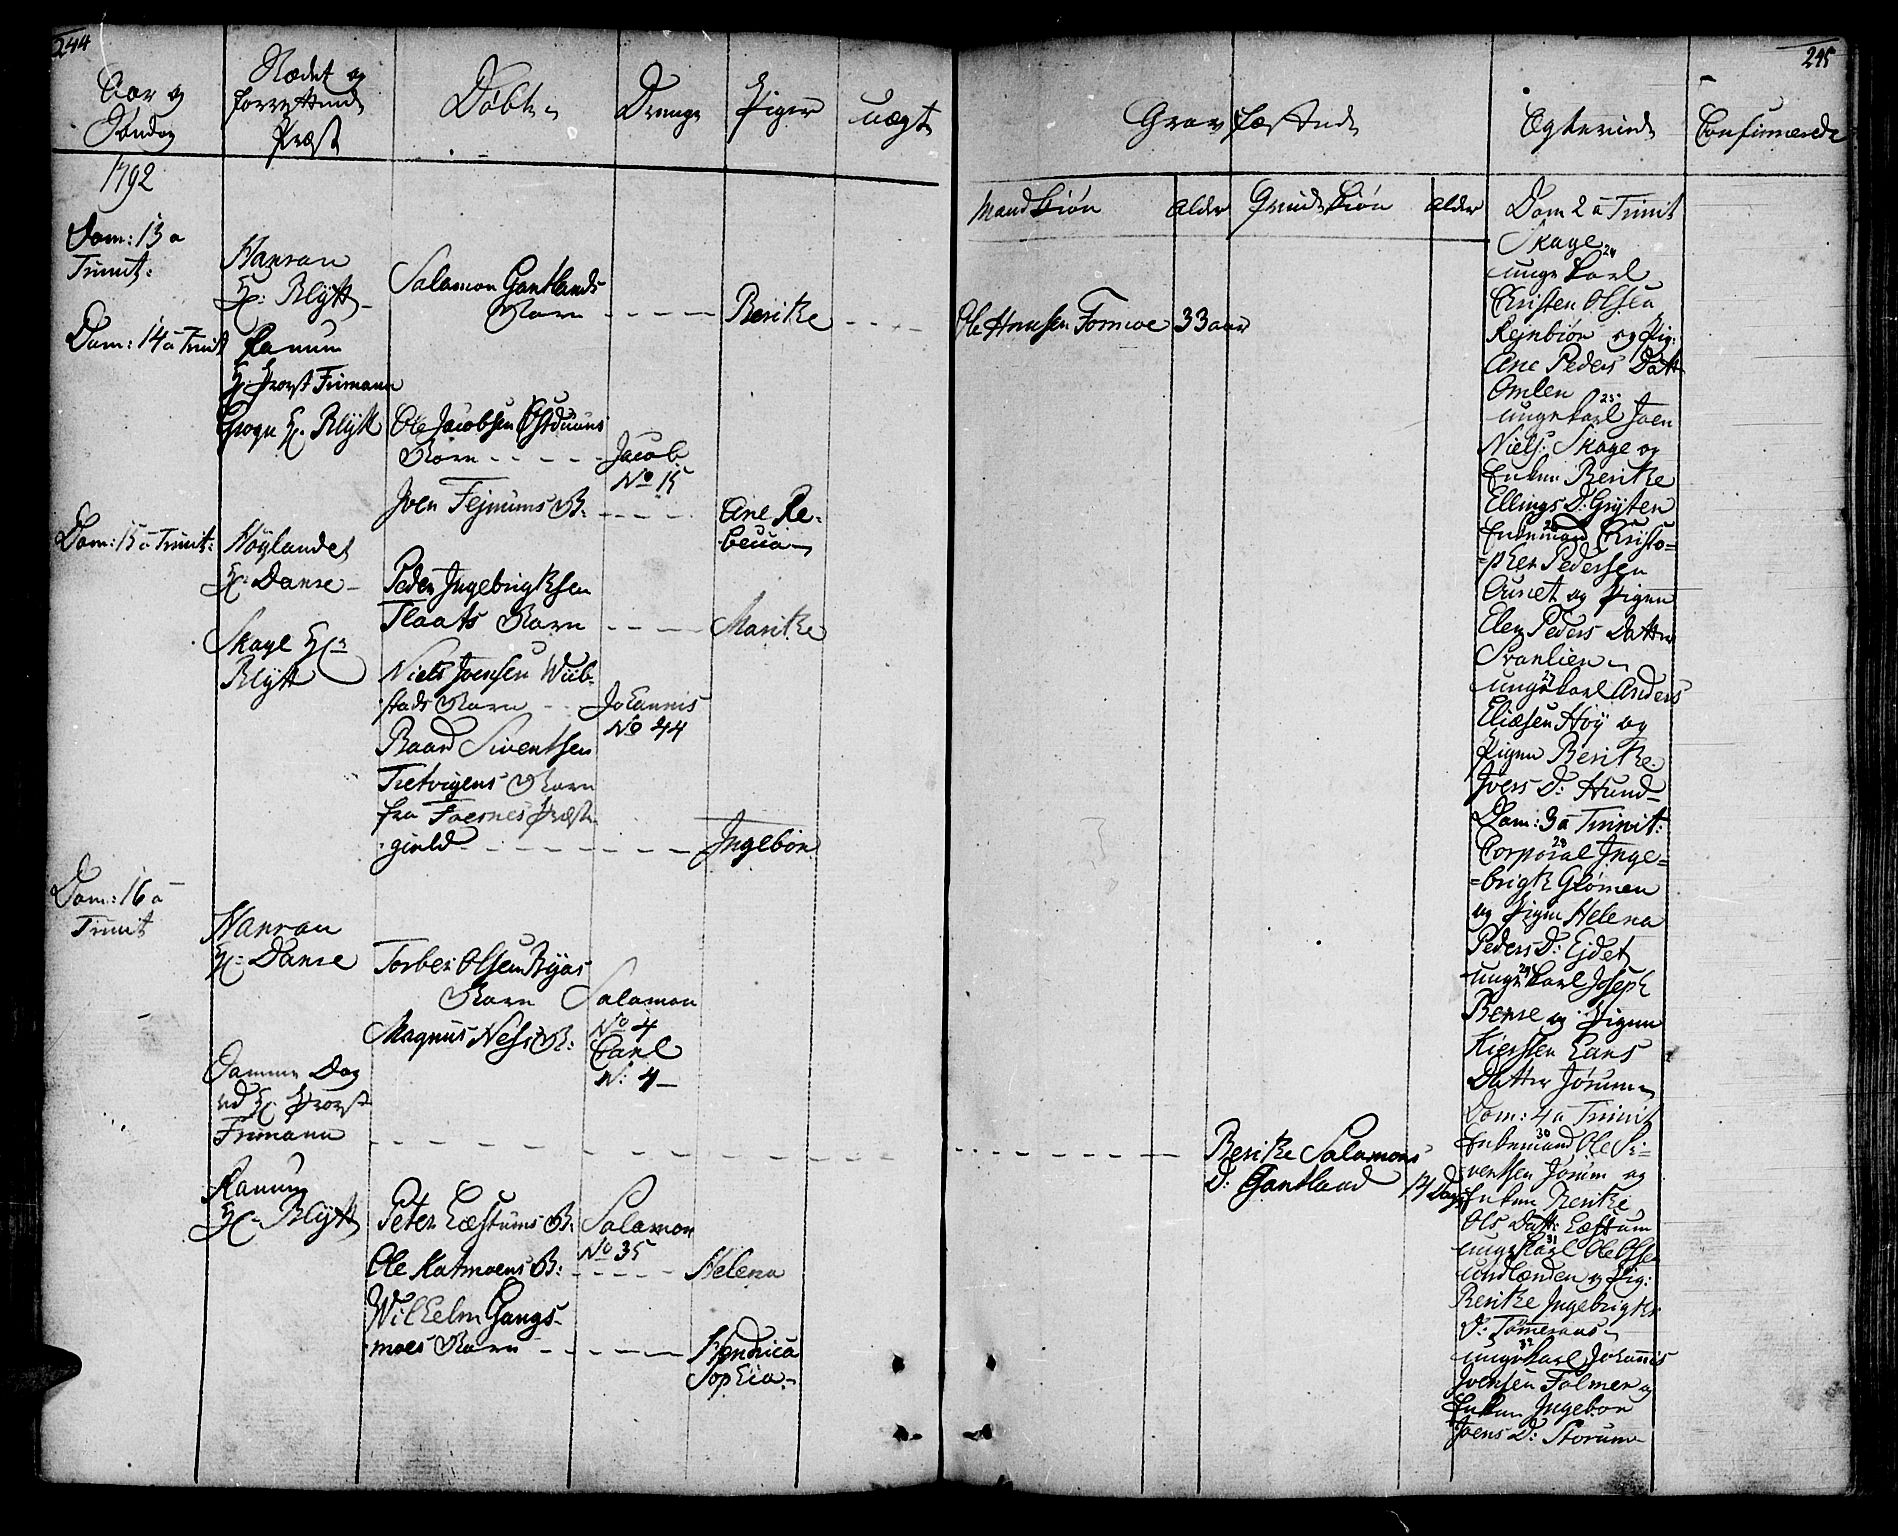 244
Aar og
Søndag
Stædet og
forrettende
Præst
Døbte
Drenge
Piger
uægte
1792
Dom: 13 a
Trinit:
Harran
H: Blÿtt
Salamon Gantlands
Barn
Berithe
Dom: 14 a Trinit
Ranum
H. Provst Frimann
Grogn H. Blÿtt
Ole Jacobsen
Barn
Jacob
No 15
Joen Fejnums B:
Ane Re-
becca
Dom: 15 a Trinit:
Höylandet
H: Danse
Peder Ingebrigtsen
Flaats Barn
Marithe
Skage H:
Blÿtt
Niels Joensen Wiib-
stads Barn
Johannis
No 44
Baard Siventsen
Tretvigens Barn
fra Foesnes Præste-
gield
Ingebor
Dom: 16 a
Trinit
Harran
H: Danse
Torber Olsen Ryas
Barn
Salamon
No 4
Magnus Ness B:
Carl
N: 4
Samme Dag
ved H. Provst
Frimann
Ranum
H: Blÿtt
Peter Læstums B:
Salamon
No 35
Ole Katmoens B:
Helena
Wilhelm Gangs-
moes Barn
Hendrica
Sophia
245
Grav fæstede
Egteviede
Confirmerede
Mandkiøn
Alder
Qvindekiøn
Alder
Ole Hansen Formoe
33 aar
Berithe Salamons
D: Gantland
14 Dage
Dom 2 a Trinit
Skage
24
ungekarl
Christen Olsen
Rejnbiön og Pig:
Ane Peders Datt
Amlen
25
ungekarl Joen
Niels: Skage og
Enken Berithe
Ellings D: Grÿten
26
Enkemand Christo=
=pher Pedersen
Aunet og Pigen
Elen Peders Datter
Svanlien
27
ungekarl Anders
Eliæsen Höÿ og
Pigen Berithe
Joers D: Hund
Dom: 3 a Trinit:
28
Corporal Inge=
=brigt Glömen
og Pigen Helena
Peders D: Ejdet
29
ungekarl Joseph
Berse og Pigen
Kiersten Lars
Datter Jørum
Dom: 4 a Trinit
30
Enkemand Ole Si=
ventsen Jörum og
Enken Berithe
Ols Datt: Læstum
31
ungekarl Ole Olsen
og Pig:
Berithe Ingebrigts
D: Tömeraas
32
ungekarl Johannis
Joensen Folmer og
Enken Ingebor
Joens D: Storum